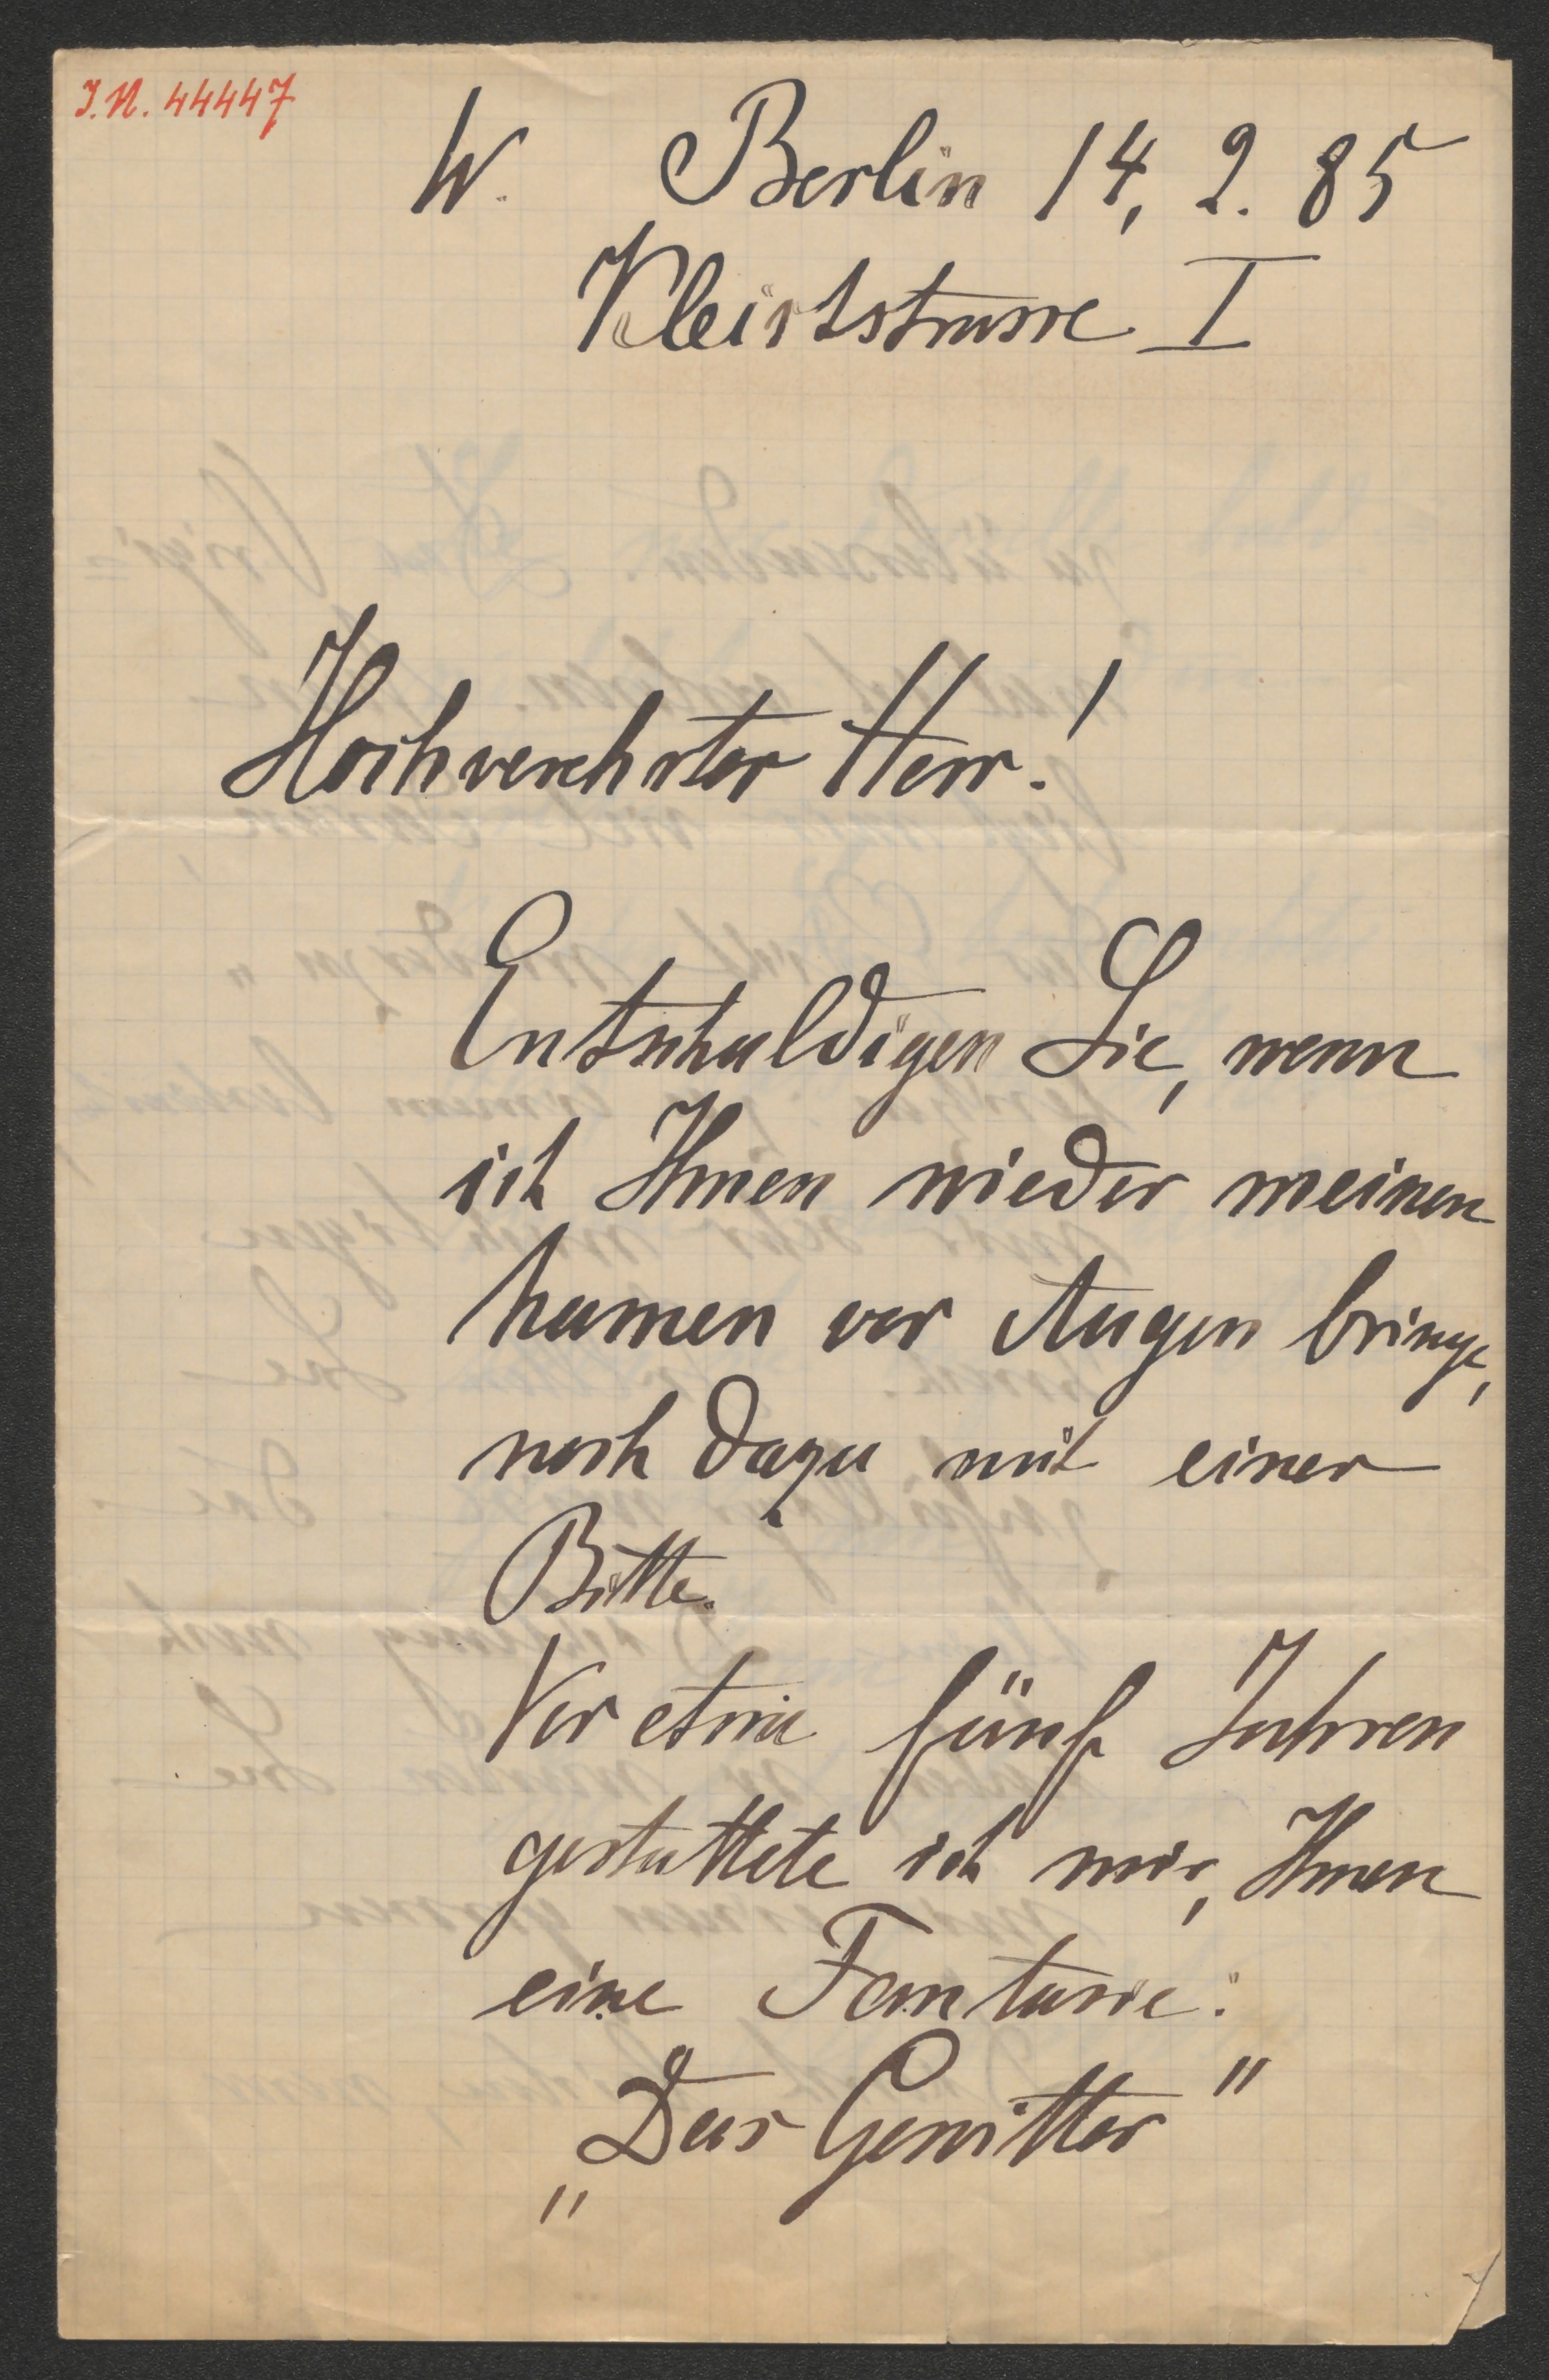 I.N. 44447
W. Berlin 14, 2. 85
Kleiststrasse I
Hochverehrter Herr!
Entschuldigen Sie, wenn
ich Ihnen wieder meinen
Namen vor Augen bringe,
noch dazu mit einer
Bitte.
Vor etwa fünf Jahren
gestattete ich mir, Ihnen
eine Fantasie:
„Das Gewitter"